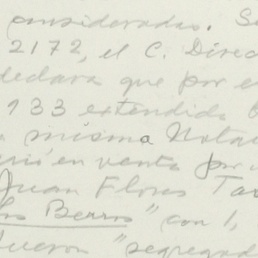 consideradas. S
2172, el C. Direc
declara que por e
133 extendida
misma Nota
en venta por
Juan Flores Ta
los Berros" con 1,
fueron "segregad